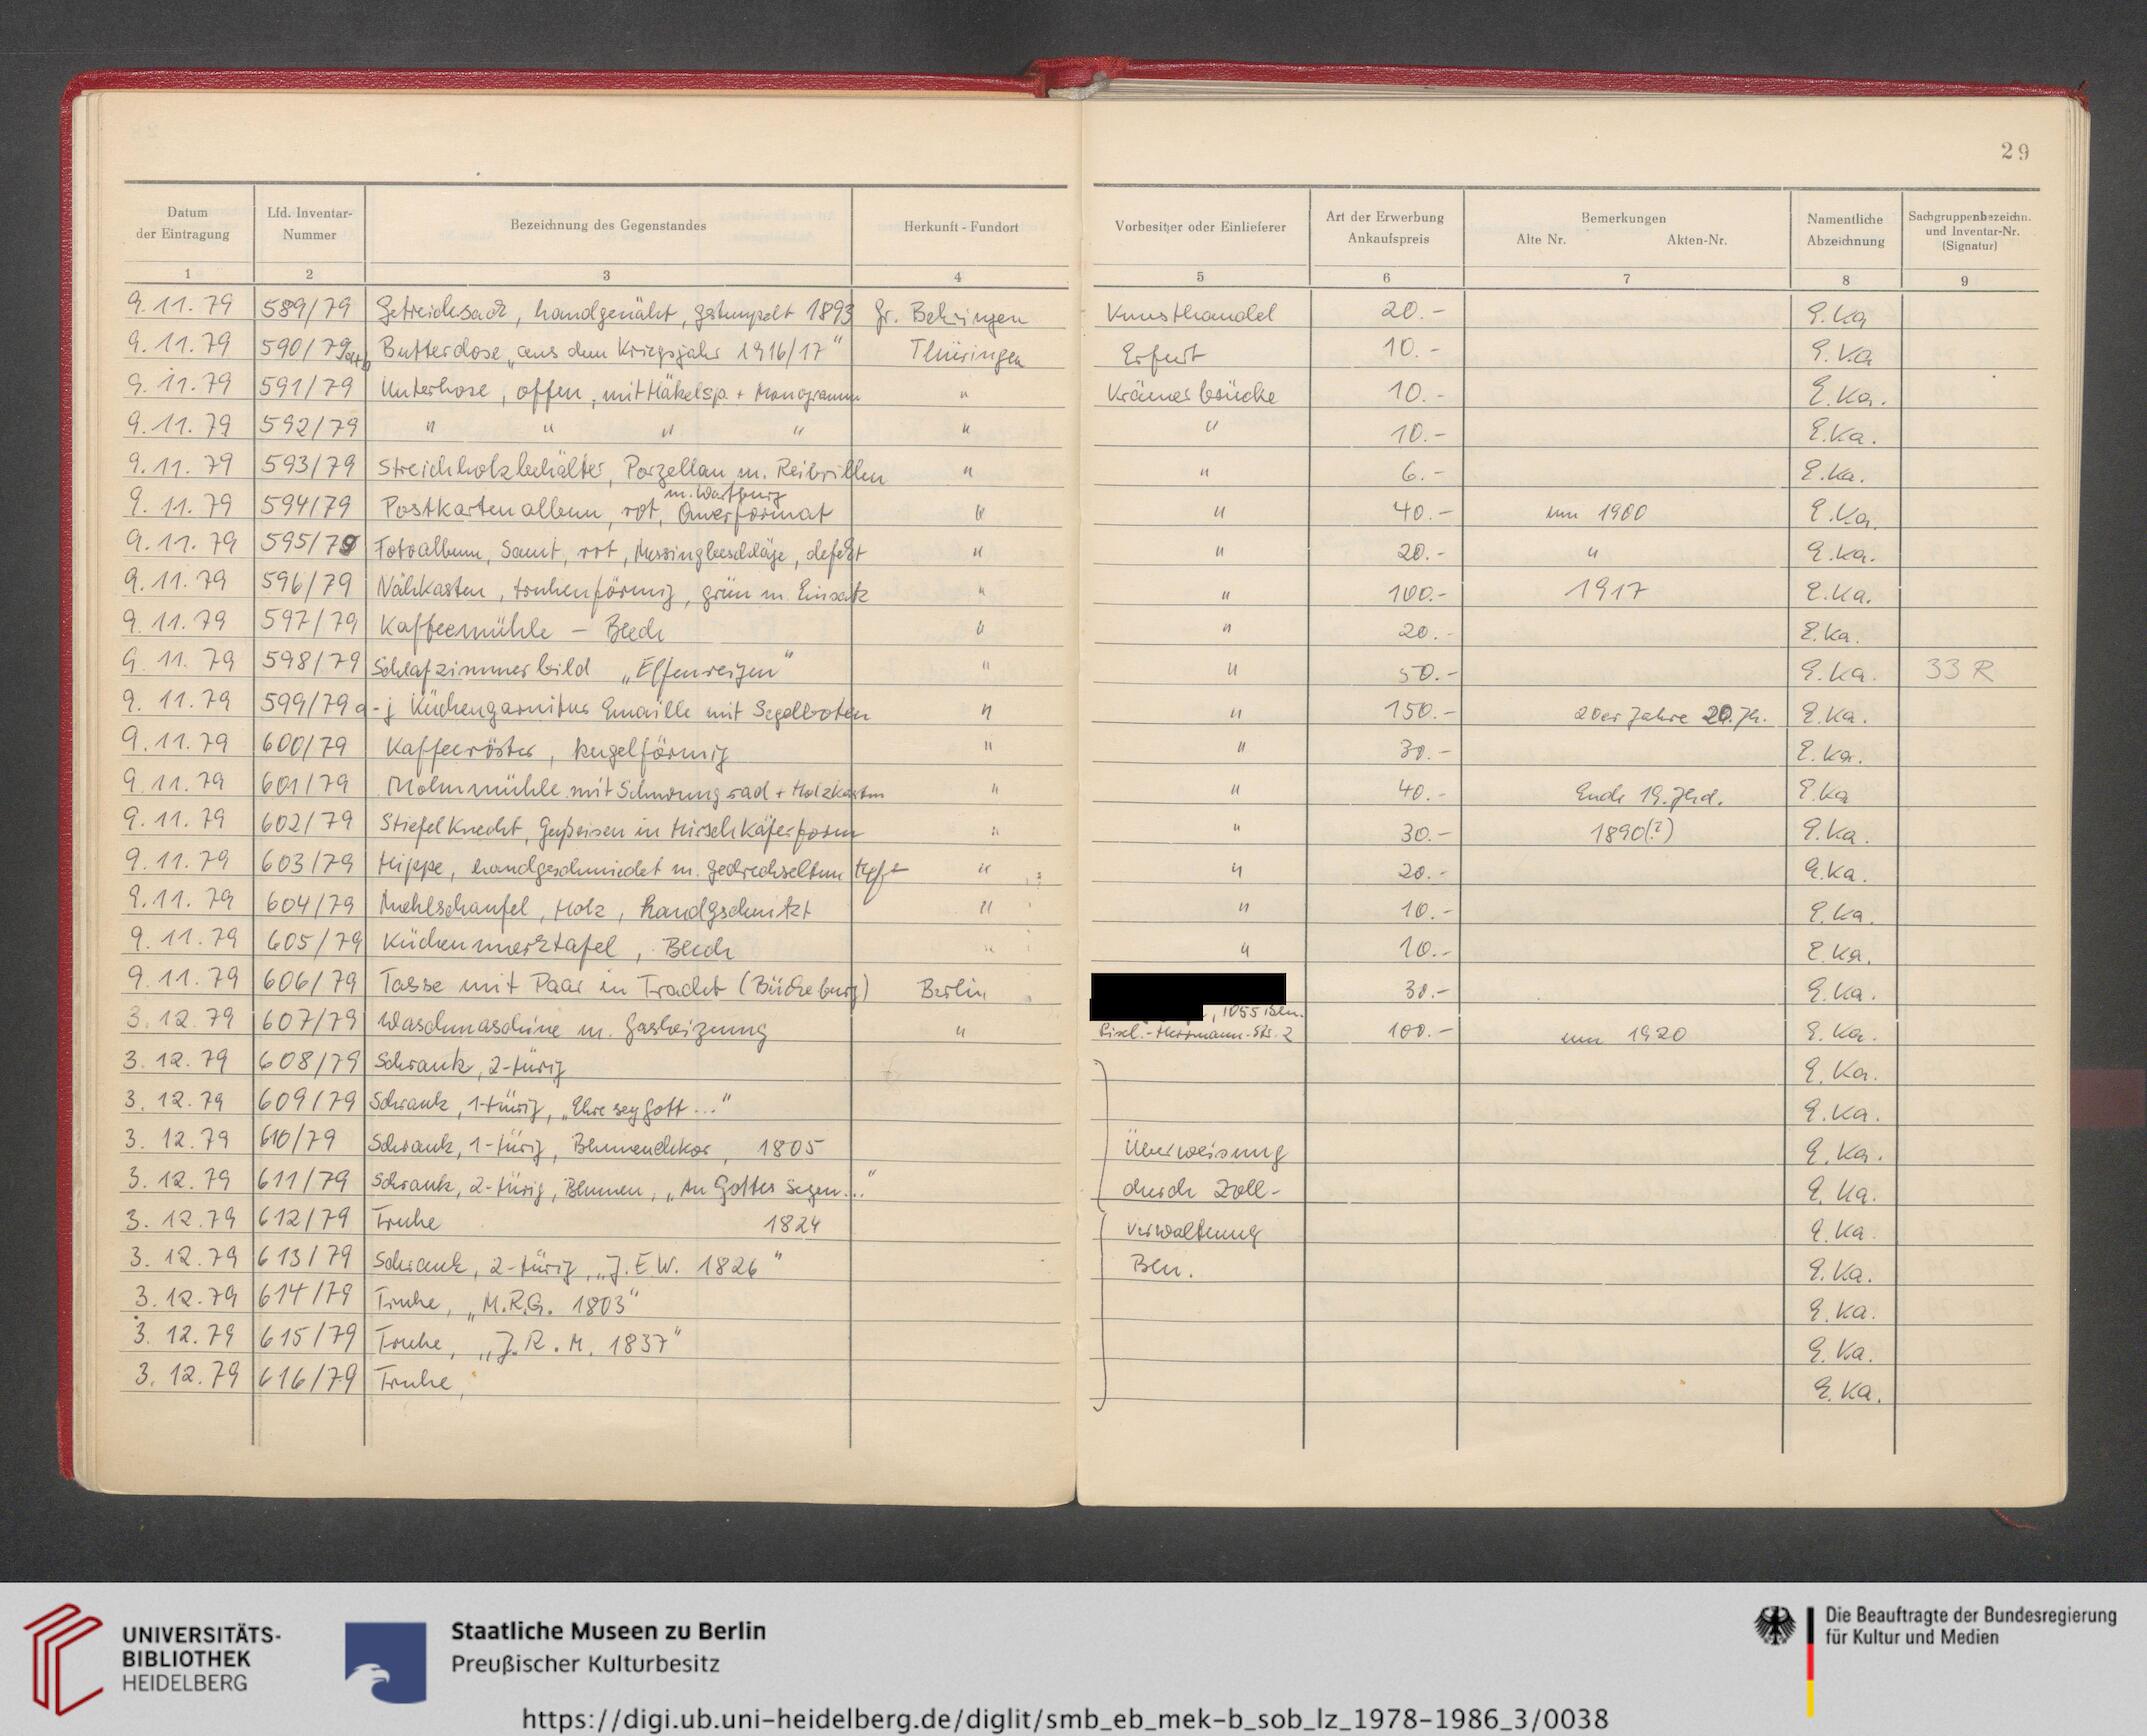 29
Datum der Eintragung | Lfd. Inventar-Nummer | Bezeichnung des Gegenstandes | Herkunft - Fundort | Vorbesitzer oder Einlieferer | Art der Erwerbung Ankaufspreis | Bemerkungen Alte Nr. Akten-Nr. | Namentliche Abzeichnung | Sachgruppenbezeichn. und Inventar-Nr. (Signatur)
1 | 2 | 3 | 4 | 5 | 6 | 7 | 8 | 9
9.11.79 | 589/79 | Getreidesack, handgenäht, gestempelt 1893 | Gr. Behringen | Kunsthandel | 20.- | E.Ka
9.11.79 | 590/79a+b | Butterdose „aus dem Kriegsjahr 1916/17" | Thüringen | Erfurt | 10.- | E.Ka
9.11.79 | 591/79 | Unterhose, offen, mit Häkelsp. + Monogramm | " | Krämerbrücke | 10.- | E.Ka.
9.11.79 | 592/79 | " " " " | " | " | 10.- | E.Ka.
9.11.79 | 593/79 | Streichholzbehälter, Porzellan m. Reibrillen | " | " | 6.- | E.Ka.
9.11.79 | 594/79 | Postkartenalbum, rot, m. Wartburg Querformat | " | " | 40.- | um 1900 | E.Ka.
9.11.79 | 595/79 | Fotoalbum, Samt, rot, Messingbeschläge, defekt | " | " | 20.- | " | E.Ka.
9.11.79 | 596/79 | Nähkasten, truhenförmig, grün m. Einsatz | " | " | 100.- | 1917 | E.Ka.
9.11.79 | 597/79 | Kaffeemühle – Blech | " | " | 20.- | E.Ka.
9.11.79 | 598/79 | Schlafzimmerbild „Elfenreigen" | " | " | 50.- | E.Ka. | 33 R
9.11.79 | 599/79 a-j | Küchengarnitur Emaille mit Segelbooten | " | " | 150.- | 20er Jahre 20. Jh. | E.Ka.
9.11.79 | 600/79 | Kaffeeröster, kugelförmig | " | " | 30.- | E.Ka.
9.11.79 | 601/79 | Mohnmühle mit Schwungrad + Holzkasten | " | " | 40.- | Ende 19. Jhd. | E.Ka
9.11.79 | 602/79 | Stiefelknecht, Gußeisen in Hirschkäferform | " | " | 30.- | 1890(?) | E.Ka.
9.11.79 | 603/79 | Hippe, handgeschmiedet m. gedrechseltem Heft | " | " | 20.- | E.Ka.
9.11.79 | 604/79 | Mehlschaufel, Holz, handgschnitzt | " | " | 10.- | E.Ka.
9.11.79 | 605/79 | Küchenmerktafel, Blech | " | " | 10.- | E.Ka.
9.11.79 | 606/79 | Tasse mit Paar in Tracht (Bückeburg) | Berlin | 30.- | E.Ka.
3.12.79 | 607/79 | Waschmaschine m. Gasheizung | " | , 1055 Bln. Lisel.-Herrmann-Str. 2 | 100.- | um 1920 | E.Ka.
3.12.79 | 608/79 | Schrank, 2-türig | E.Ka.
3.12.79 | 609/79 | Schrank, 1-türig, „Ehre sey Gott..." | E.Ka.
3.12.79 | 610/79 | Schrank, 1-türig, Blumendekor, 1805 | Überweisung | E.Ka.
3.12.79 | 611/79 | Schrank, 2-türig, Blumen, „An Gottes Segen..." | durch Zoll- | E.Ka.
3.12.79 | 612/79 | Truhe 1824 | verwaltung | E.Ka
3.12.79 | 613/79 | Schrank, 2-türig, „J.E.W. 1826" | Bln. | E.Ka.
3.12.79 | 614/79 | Truhe, „M.R.G. 1803" | E.Ka.
3.12.79 | 615/79 | Truhe, „J.R.M. 1837" | E.Ka.
3.12.79 | 616/79 | Truhe, | E.Ka.
UNIVERSITÄTS-
BIBLIOTHEK
HEIDELBERG
Staatliche Museen zu Berlin
Preußischer Kulturbesitz
Die Beauftragte der Bundesregierung
für Kultur und Medien
https://digi.ub.uni-heidelberg.de/diglit/smb_eb_mek-b_sob_lz_1978-1986_3/0038